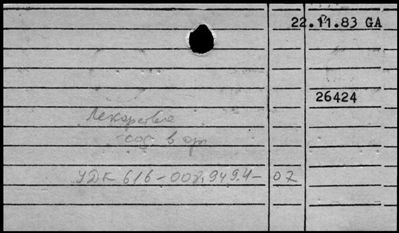 22.11.83 GA
26424
Лекарство
- об в орг
УДК 616-008.949.4-07